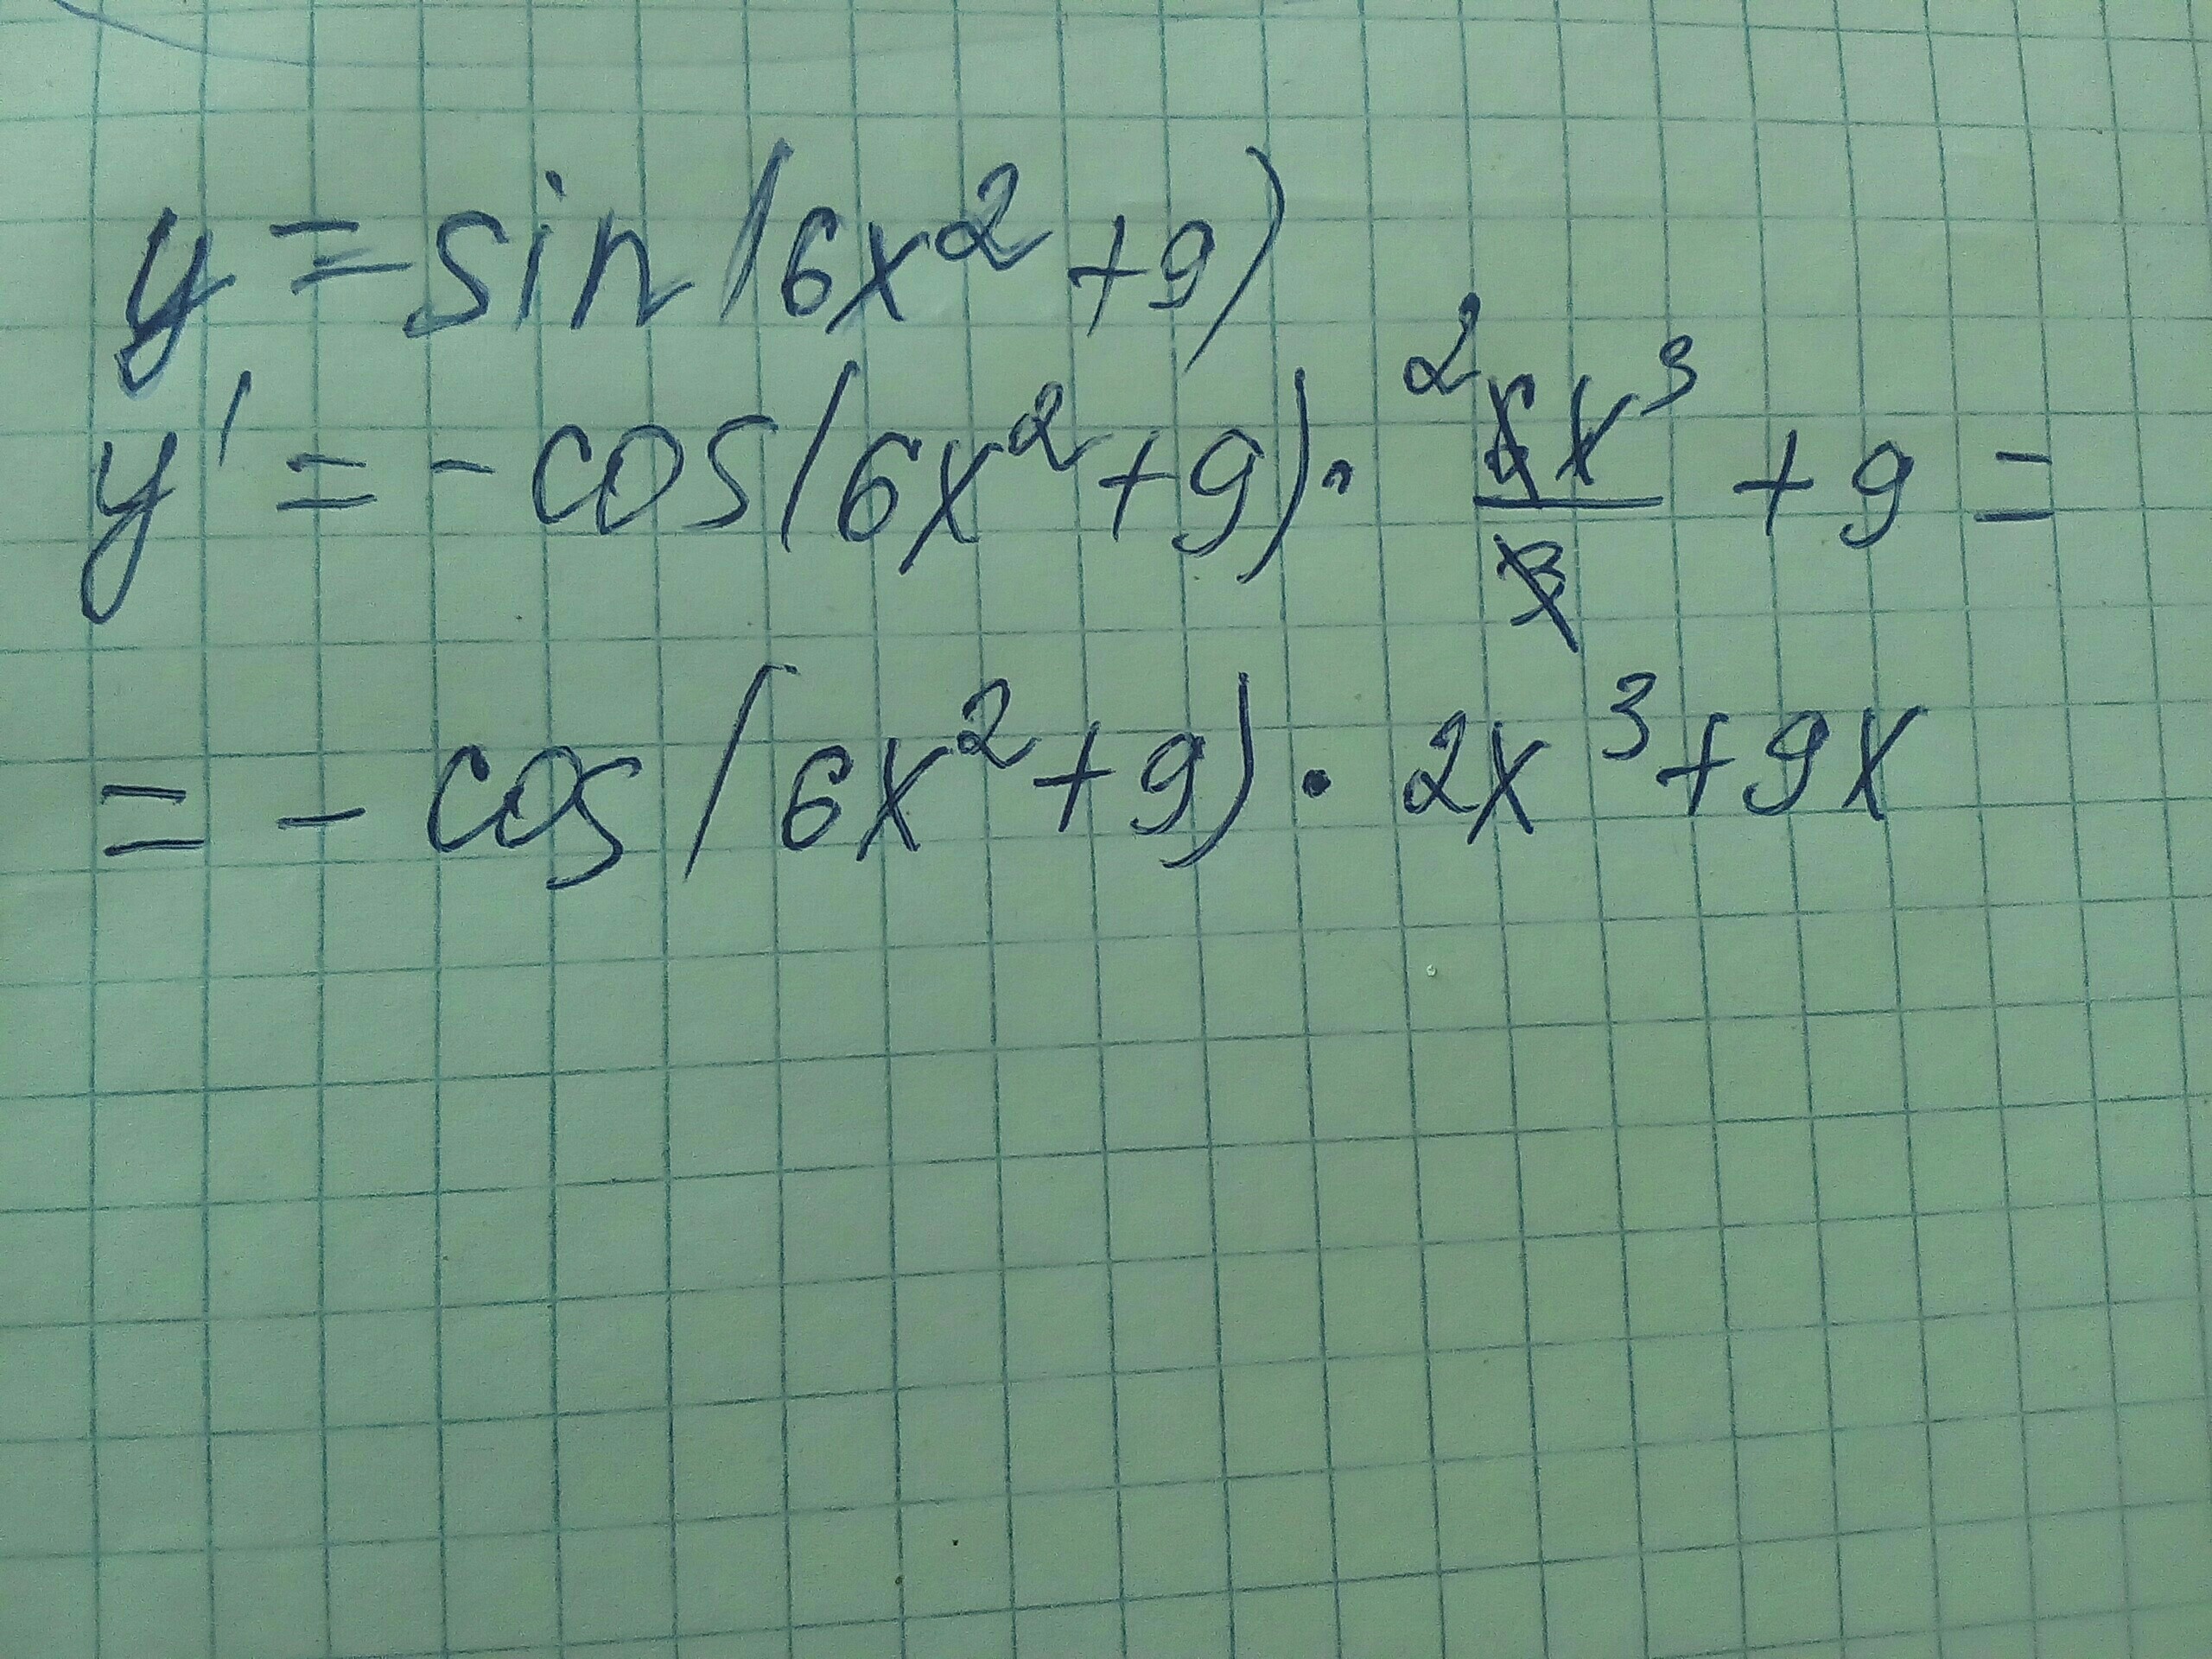 y = sin(6x² + 9)
y' = - cos(6x² + 9) · ²6x³/3 + 9 =
= - cos(6x² + 9) · 2x³ + 9x